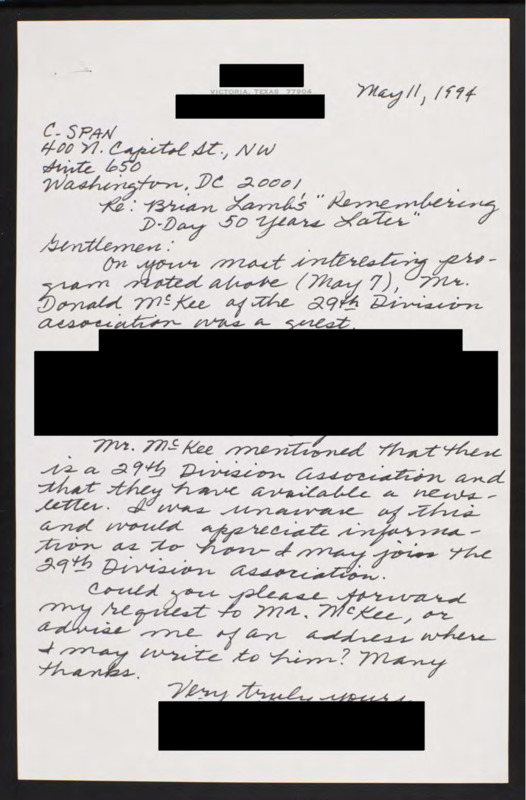 VICTORIA, TEXAS 77904
May 11, 1994
C-SPAN
400 N. Capitol St., NW
Suite 650
Washington, DC 20001
Re: Brian Lamb's "Remembering
D-Day 50 Years Later"
Gentlemen:
On your most interesting pro-
gram noted above (May 7), Mr.
Donald McKee of the 29th Division
association was a guest.
Mr. McKee mentioned that there
is a 29th Division Association and
that they have available a news-
letter. I was unaware of this
and would appreciate informa-
tion as to how I may join the
29th Division Association.
Could you please forward
my request to Mr. McKee, or
advise me of an address where
I may write to him? Many
thanks.
Very truly yours,